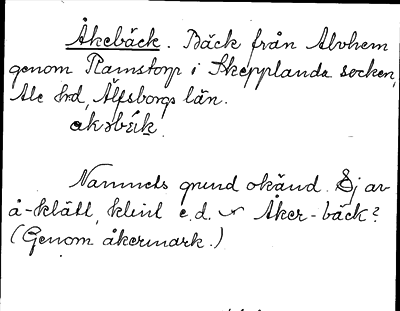 Åkebäck. Bäck från Alvhem
genom Ramstorp i Skepplanda socken,
Ale hrd, Älfsborgs län.
akəbäik
Namnets grund okänd. Ej av
å-klätt, klint e.d. Åker-bäck?
(Genom åkermark.)